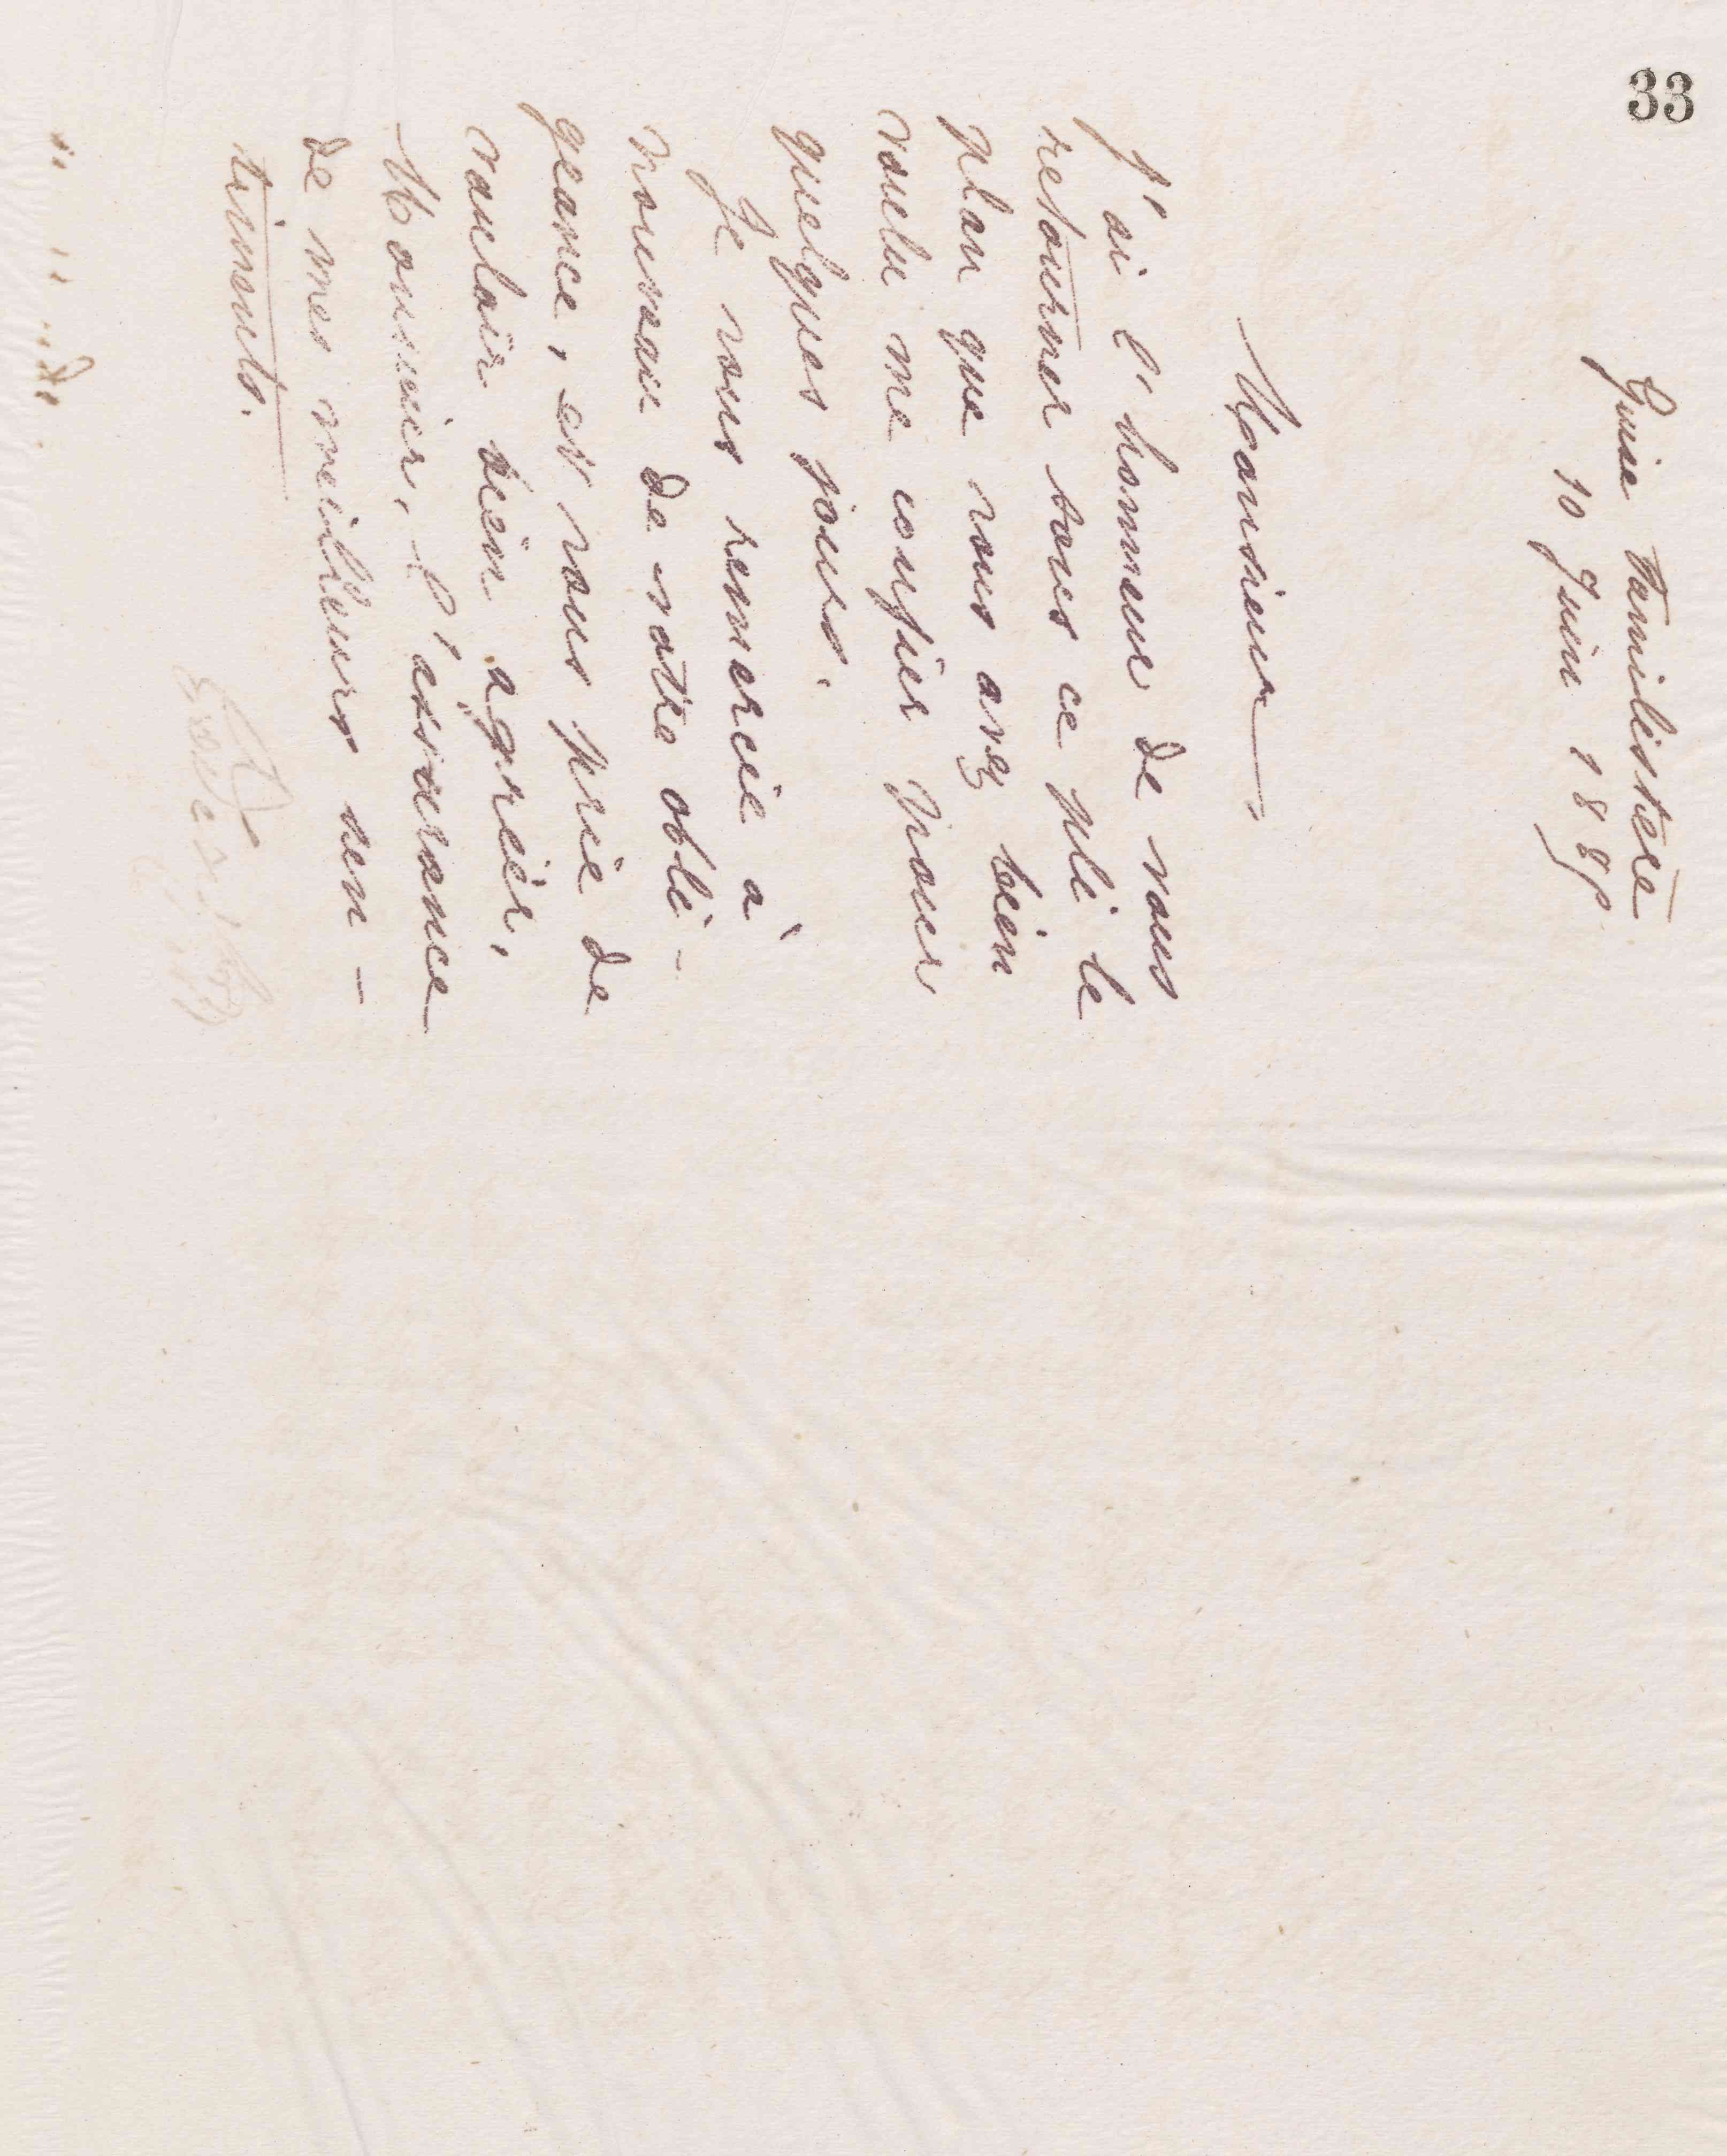 33
Guise Familistère
10 Juin 1889
Monsieur
J'ai l'honneur de vous
retourner sous ce pli le
plan que vous avez bien
voulu me confier pour
quelques jours.
Je vous remercie à
nouveau de votre obli-
geance, et vous prie de
vouloir bien agréer,
Monsieur, l'assurance
de mes meilleurs sen-
timents.